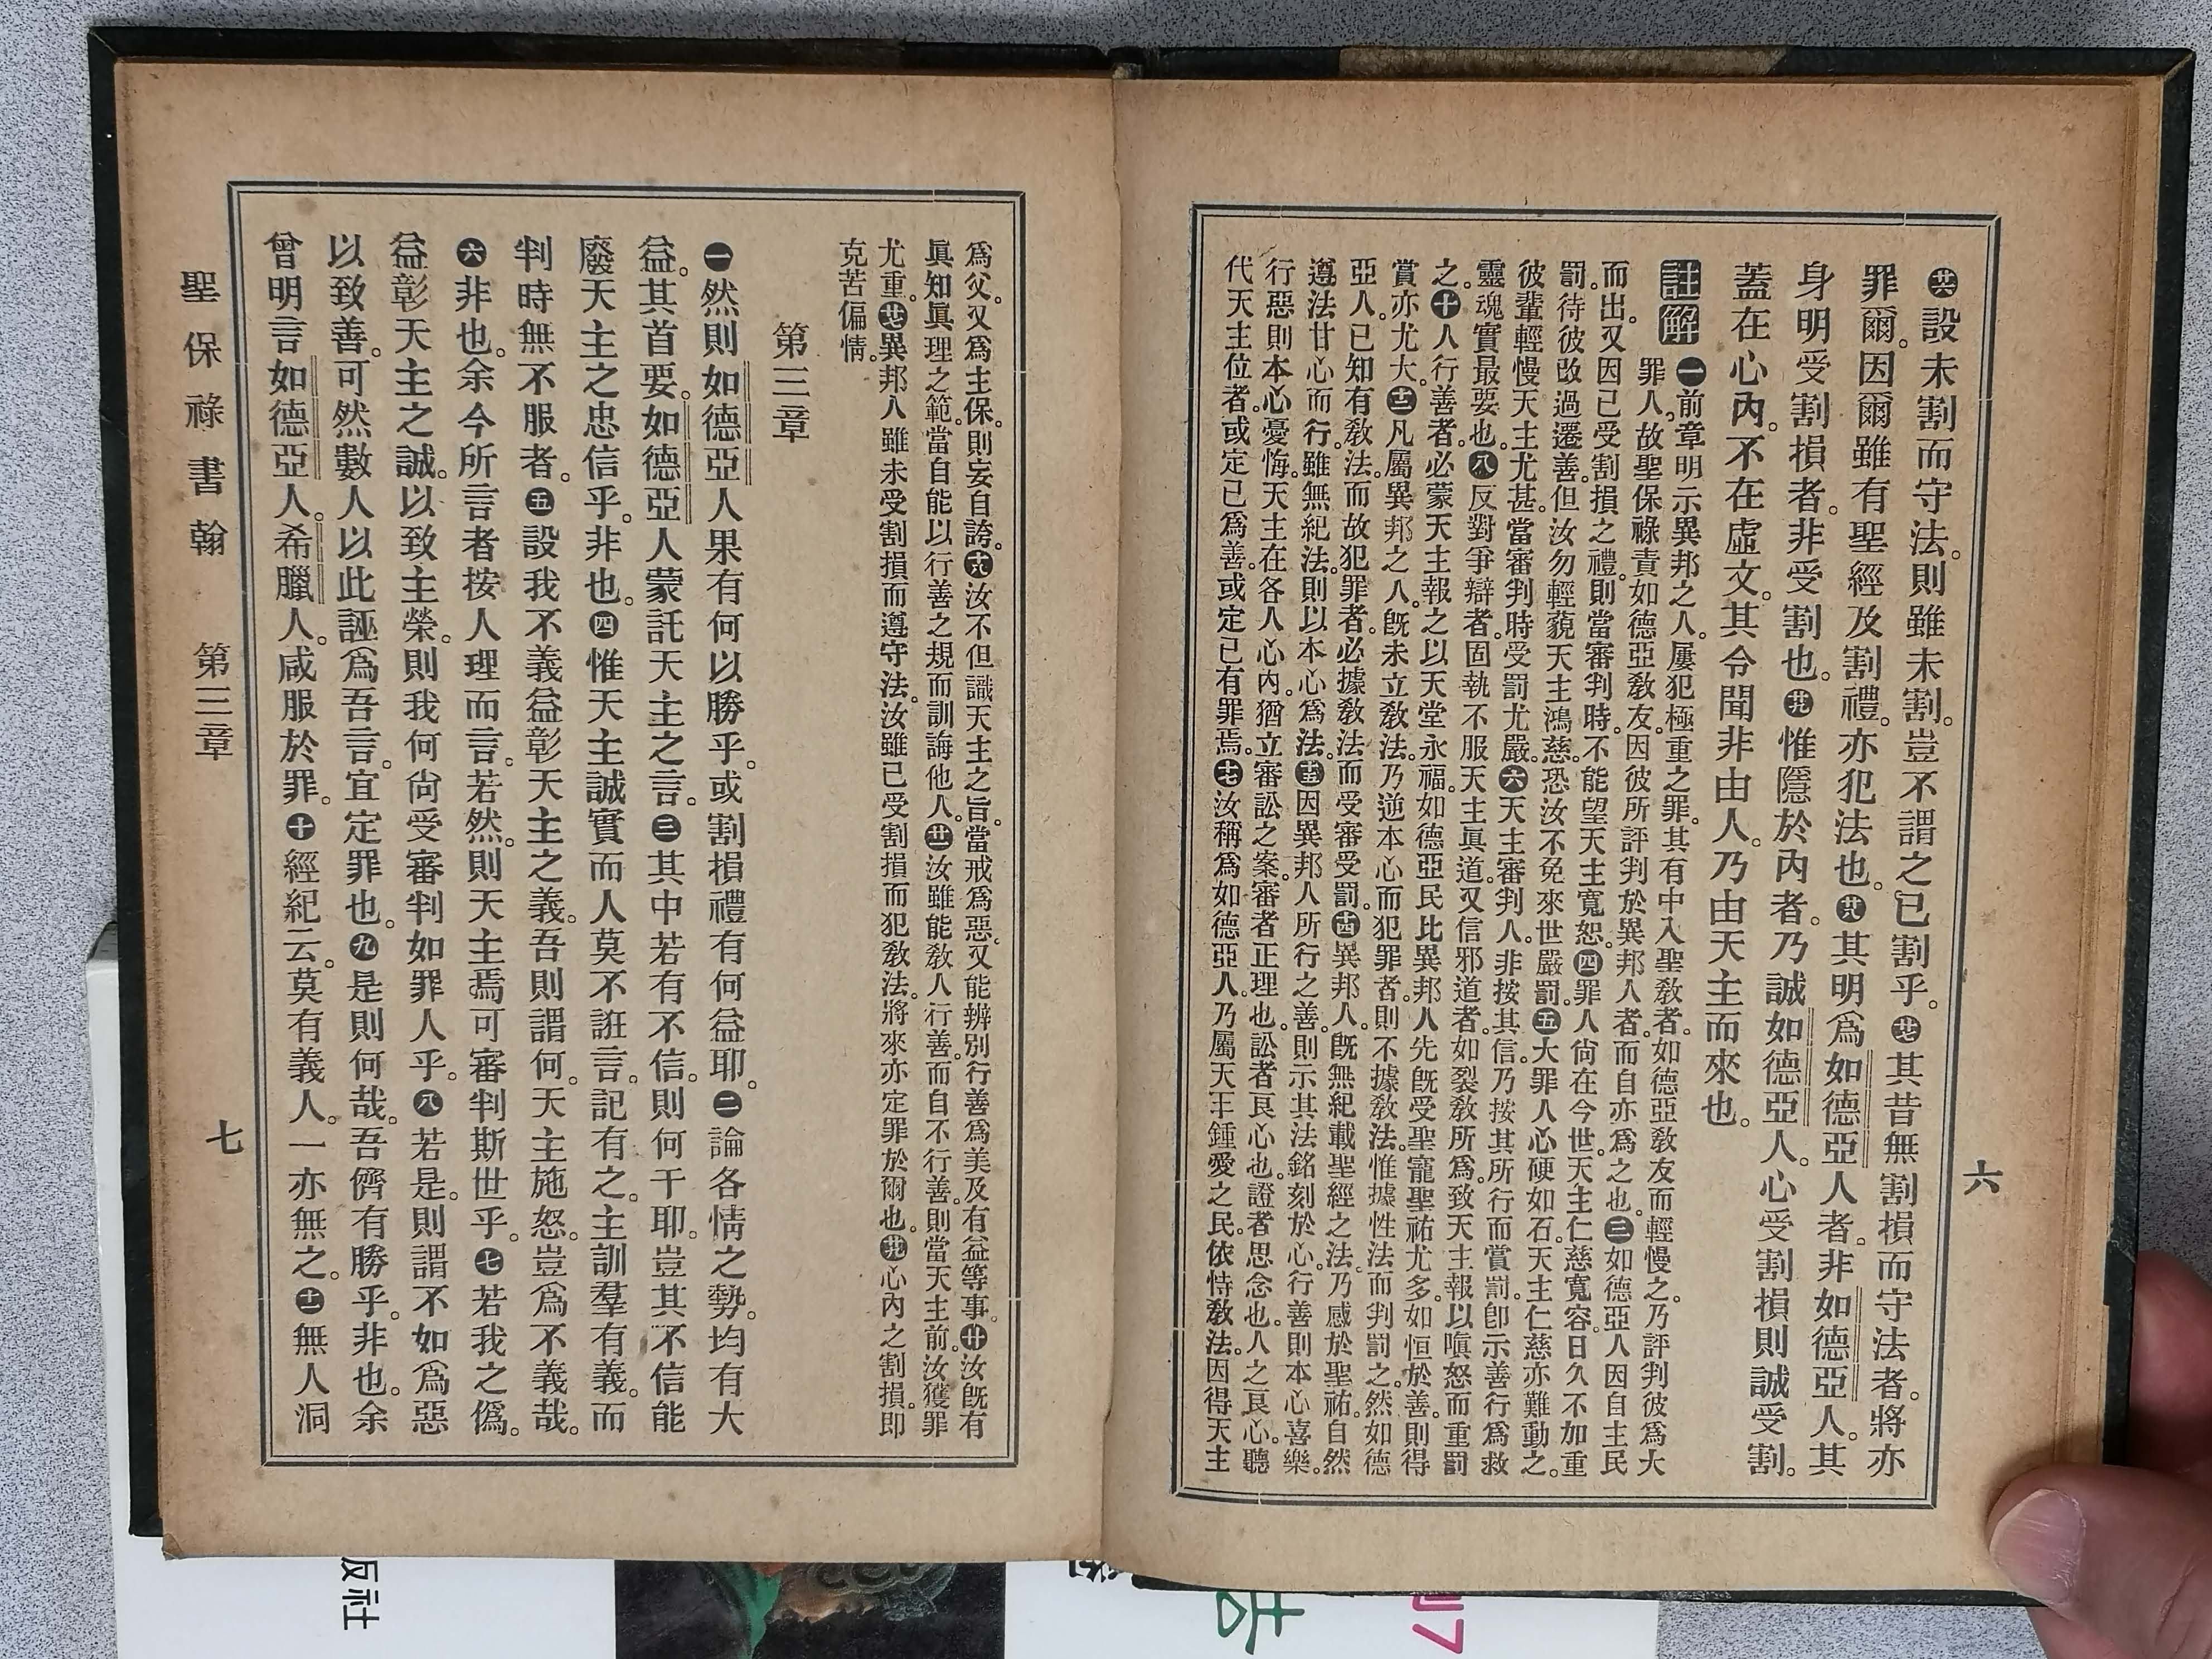 六
㊅設未割而守法。則雖未割。豈不謂之已割乎。㊆其昔無割損而守法者。將亦
罪爾。因爾雖有聖經及割禮。亦犯法也。㊇其明爲如德亞人者。非如德亞人。其
身明受割損者。非受割也。㊈惟隱於內者。乃誠如德亞人。心受割損則誠受割。
蓋在心內。不在虛文。其令聞非由人。乃由天主而來也。
註解 ㊀前章明示異邦之人。屢犯極重之罪。其有中入聖敎者。如德亞敎友而輕慢之。乃評判彼爲大
罪人。故聖保祿責如德亞敎友。因彼所評判於異邦人者。而自亦爲之也。㊂如德亞人因自主民
而出。又因已受割損之禮。則當審判時。不能望天主寬恕。㊃罪人尙在今世。天主仁慈寬容。日久不加重
罰。待彼改過遷善。但汝勿輕藐天主鴻慈。恐汝不免來世嚴罰。㊄大罪人心硬如石。天主仁慈亦難動之。
彼輩輕慢天主尤甚。當審判時受罰尤嚴。㊅天主審判人。非按其信。乃按其所行而賞罰。卽示善行爲救
靈魂實最要也。㊇反對爭辯者。固執不服天主眞道。又信邪道者。如裂敎所爲。致天主報以嗔怒而重罰
之。㊉人行善者。必蒙天主報之以天堂永福。如德亞民比異邦人先旣受聖寵聖祐尤多。如恒於善。則得
賞亦尤大。十二凡屬異邦之人。旣未立敎法。乃逆本心而犯罪者。則不據敎法。惟據性法而判罰之。然如德
亞人。已知有敎法。而故犯罪者。必據敎法而受審受罰。十四異邦人。旣無紀載聖經之法。乃感於聖祐。自然
遵法甘心而行。雖無紀法。則以本心爲法。十五因異邦人所行之善。則示其法銘刻於心。行善則本心喜樂。
行惡則本心憂悔。天主在各人心內。猶立審訟之案。審者正理也。訟者良心也。證者思念也。人之良心。聽
代天主位者。或定已爲善。或定已有罪焉。十七汝稱爲如德亞人。乃屬天主鍾愛之民。依恃敎法。因得天主
爲父。又爲主保。則妄自誇。十八汝不但識天主之旨。當戒爲惡。又能辨別行善爲美及有益等事。廿汝旣有
眞知眞理之範。當自能以行善之規而訓誨他人。廿一汝雖能敎人行善。而自不行善。則當天主前。汝獲罪
尤重。廿七異邦人雖未受割損而遵守法。汝雖已受割損而犯敎法。將來亦定罪於爾也。廿九心內之割損。即
克苦偏情。
第三章
㊀然則如德亞人果有何以勝乎。或割損禮有何益耶。㊁論各情之勢。均有大
益。其首要。如德亞人蒙託天主之言。㊂其中若有不信。則何干耶。豈其不信能
廢天主之忠信乎。非也。㊃惟天主誠實而人莫不誑言。記有之。主訓羣有義。而
判時無不服者。㊄設我不義益彰天主之義。吾則謂何。天主施怒。豈爲不義哉。
㊅非也。余今所言者按人理而言。若然。則天主焉可審判斯世乎。㊆若我之僞。
益彰天主之誠。以致主榮。則我何尙受審判如罪人乎。㊇若是。則謂不如爲惡
以致善。可然數人以此誣爲吾言。宜定罪也。㊈是則何哉。吾儕有勝乎。非也。余
曾明言如德亞人。希臘人。咸服於罪。㊉經紀云。莫有義人。一亦無之。十一無人洞
聖保祿書翰 第三章 七
反社